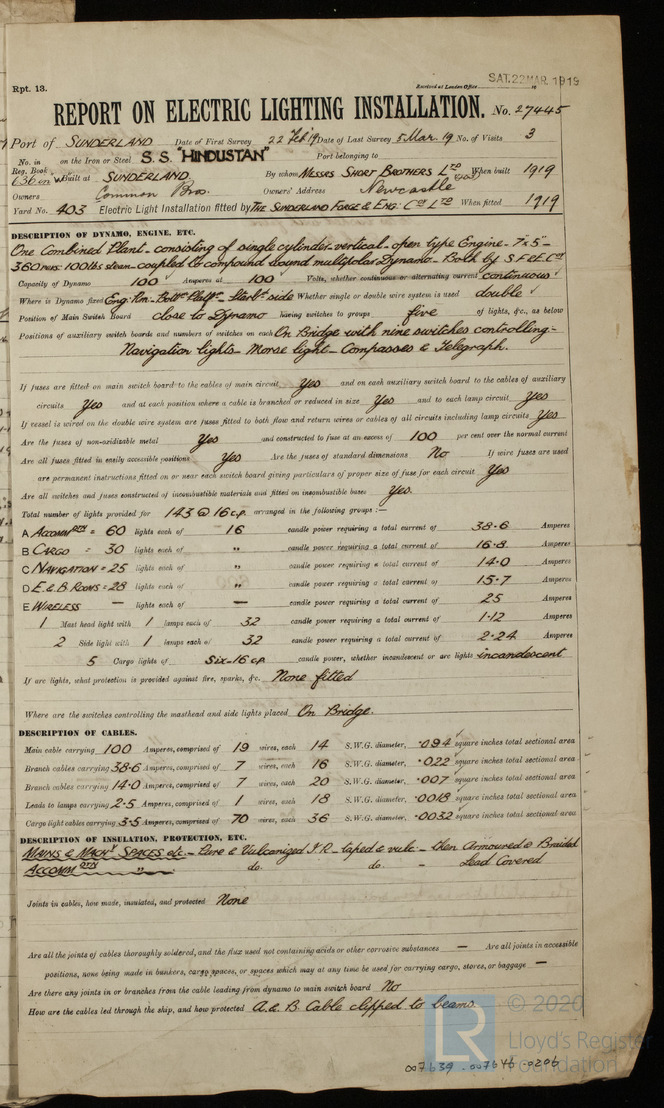 Rpt. 13.
Received at London Office
SAT. 22 MAR. 1919
REPORT ON ELECTRIC LIGHTING INSTALLATION. No. 27445
Port of SUNDERLAND Date of First Survey 22 Feb '19 Date of Last Survey 5 Mar. 19 No. of Visits 3
No. in Reg. Book on the Iron or Steel S.S. "HINDUSTAN" Port belonging to
Built at SUNDERLAND By whom MESSRS SHORT BROTHERS LTD When built 1919
Owners Common Bro. Owners' Address Newcastle
Yard No. 403 Electric Light Installation fitted by THE SUNDERLAND FORGE & ENG: Co LTD When fitted 1919
DESCRIPTION OF DYNAMO, ENGINE, ETC.
One Combined Plant - consisting of single cylinder - vertical - open type Engine - 7" x 5" -
360 revs: 100 lbs steam - coupled to compound wound multipolar Dynamo - Both by S.F. & E. Co
Capacity of Dynamo 100 Amperes at 100 Volts, whether continuous or alternating current continuous
Where is Dynamo fixed Eng: Rm - Bottm Platfm - Starbd side Whether single or double wire system is used double
Position of Main Switch Board close to Dynamo having switches to groups five of lights, &c., as below
Positions of auxiliary switch boards and numbers of switches on each On Bridge with nine switches controlling:-
Navigation lights - Morse light - Compasses & Telegraph.
If fuses are fitted on main switch board to the cables of main circuit Yes and on each auxiliary switch board to the cables of auxiliary
circuits Yes and at each position where a cable is branched or reduced in size Yes and to each lamp circuit Yes
If vessel is wired on the double wire system are fuses fitted to both flow and return wires or cables of all circuits including lamp circuits Yes
Are the fuses of non-oxidizable metal Yes and constructed to fuse at an excess of 100 per cent over the normal current
Are all fuses fitted in easily accessible positions Yes Are the fuses of standard dimensions No If wire fuses are used
are permanent instructions fitted on or near each switch board giving particulars of proper size of fuse for each circuit Yes
Are all switches and fuses constructed of incombustible materials and fitted on incombustible bases Yes.
Total number of lights provided for 143 @ 16 c.p. arranged in the following groups :—
A ACCOMMDTN = 60 lights each of 16 candle power requiring a total current of 38.6 Amperes
B CARGO = 30 lights each of " candle power requiring a total current of 16.8 Amperes
C NAVIGATION = 25 lights each of " candle power requiring a total current of 14.0 Amperes
D E & B ROOMS = 28 lights each of " candle power requiring a total current of 15.7 Amperes
E WIRELESS — lights each of — candle power requiring a total current of 25 Amperes
1 Mast head light with 1 lamps each of 32 candle power requiring a total current of 1.12 Amperes
2 Side light with 1 lamps each of 32 candle power requiring a total current of 2.24 Amperes
5 Cargo lights of Six - 16 c.p. candle power, whether incandescent or arc lights incandescent
If arc lights, what protection is provided against fire, sparks, &c. None fitted
Where are the switches controlling the masthead and side lights placed On Bridge.
DESCRIPTION OF CABLES.
Main cable carrying 100 Amperes, comprised of 19 wires, each 14 S.W.G. diameter, .094 square inches total sectional area
Branch cables carrying 38.6 Amperes, comprised of 7 wires, each 16 S.W.G. diameter, .022 square inches total sectional area
Branch cables carrying 14.0 Amperes, comprised of 7 wires, each 20 S.W.G. diameter, .007 square inches total sectional area
Leads to lamps carrying 2.5 Amperes, comprised of 1 wires, each 18 S.W.G. diameter, .0018 square inches total sectional area
Cargo light cables carrying 3.5 Amperes, comprised of 70 wires, each 36 S.W.G. diameter, .0032 square inches total sectional area
DESCRIPTION OF INSULATION, PROTECTION, ETC.
MAINS & MACHY SPACES etc. - Pure & Vulcanized I.R - taped & vulc - then Armoured & Braided
ACCOMMDTN " do. do. - Lead Covered
Joints in cables, how made, insulated, and protected None
Are all the joints of cables thoroughly soldered, and the flux used not containing acids or other corrosive substances — Are all joints in accessible
positions, none being made in bunkers, cargo spaces, or spaces which may at any time be used for carrying cargo, stores, or baggage —
Are there any joints in or branches from the cable leading from dynamo to main switch board No
How are the cables led through the ship, and how protected A. & B. Cable clipped to beams
LR
© 2020
Lloyd's Register
Foundation
007639 - 007646 - 0206